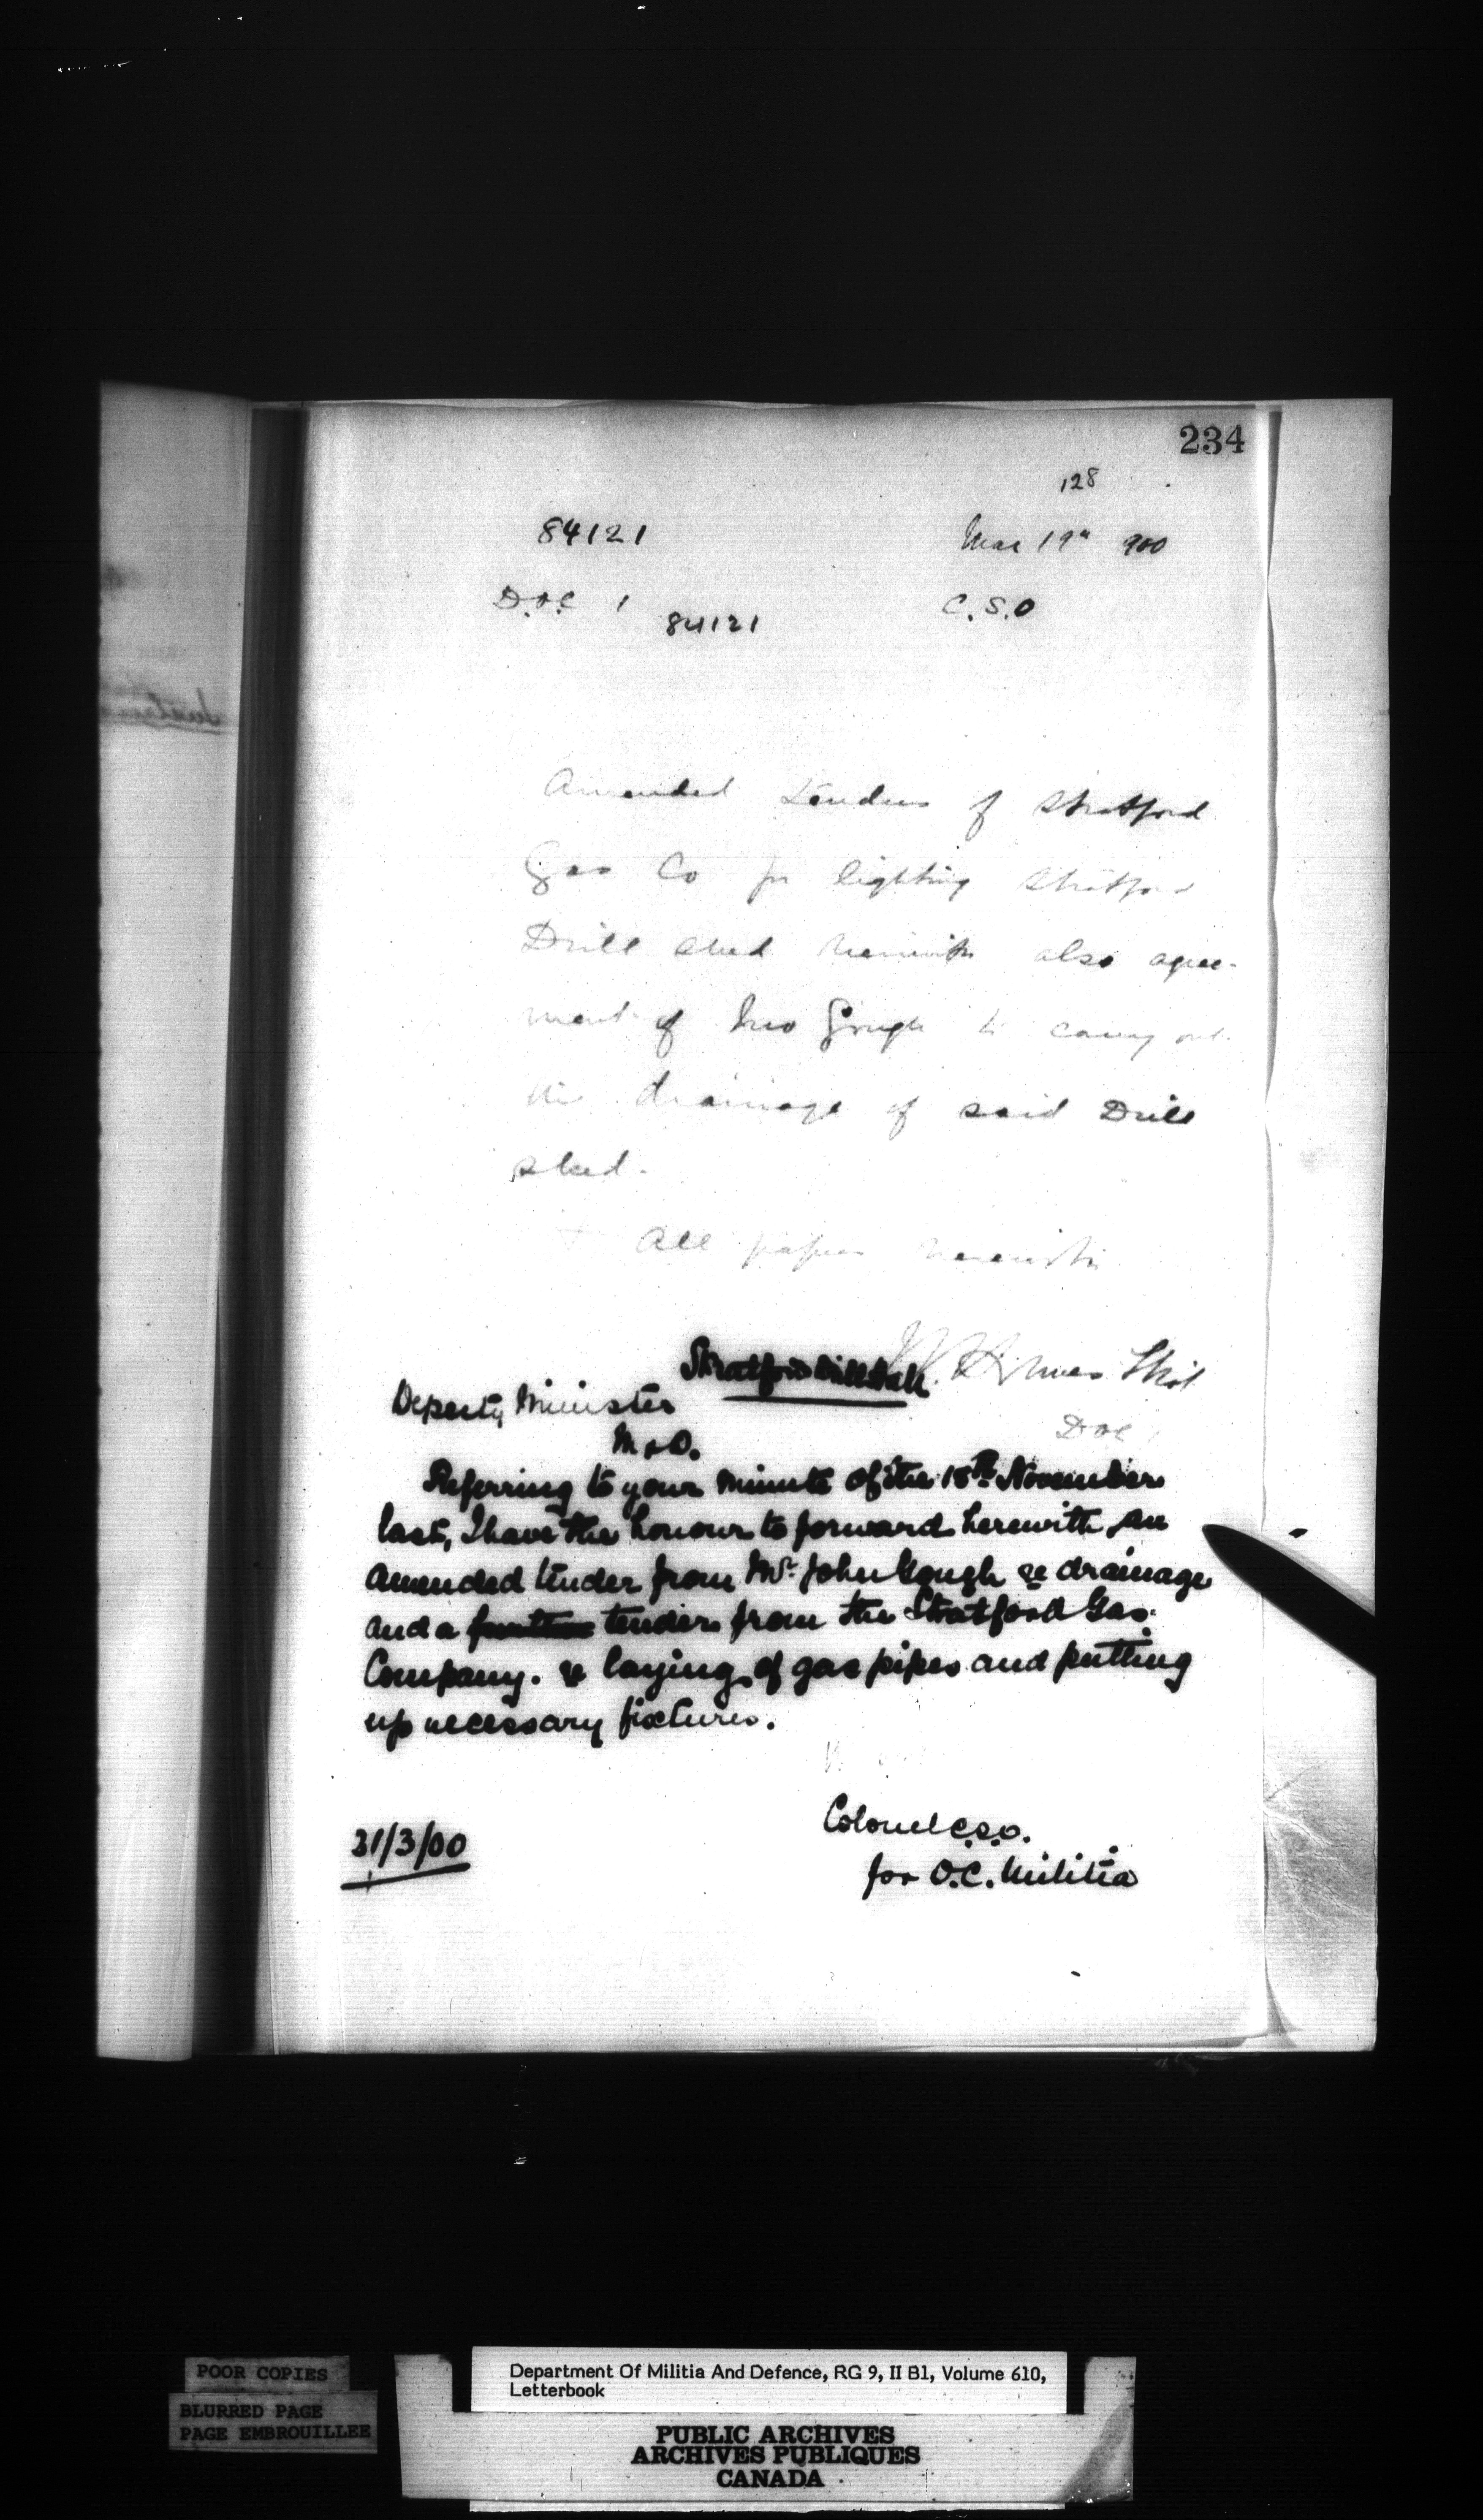 234
128
84121 Mar 19th 900
D.O.C 1 84121 C.S.O
Amended Tenders of Stratford
Gas Co for lighting Stratford
Drill shed herewith also agree-
ment of Jno Gough to carry out
the drainage of said Drill
shed.
All papers herewith
Holmes
DOC
Stratford Drill Hall
Deputy Minister
M & D.
Referring to your minute of the 18th November
last, I have the honour to forward herewith an
amended tender from Mr. John Gough re drainage
and a further tender from the Stratford Gas
Company. re laying of gas pipes and putting
up necessary fixtures.
Colonel C.S.O.
for O.C. Militia
21/3/00
POOR COPIES
BLURRED PAGE
PAGE EMBROUILLEE
Department Of Militia And Defence, RG 9, II B1, Volume 610,
Letterbook
PUBLIC ARCHIVES
ARCHIVES PUBLIQUES
CANADA